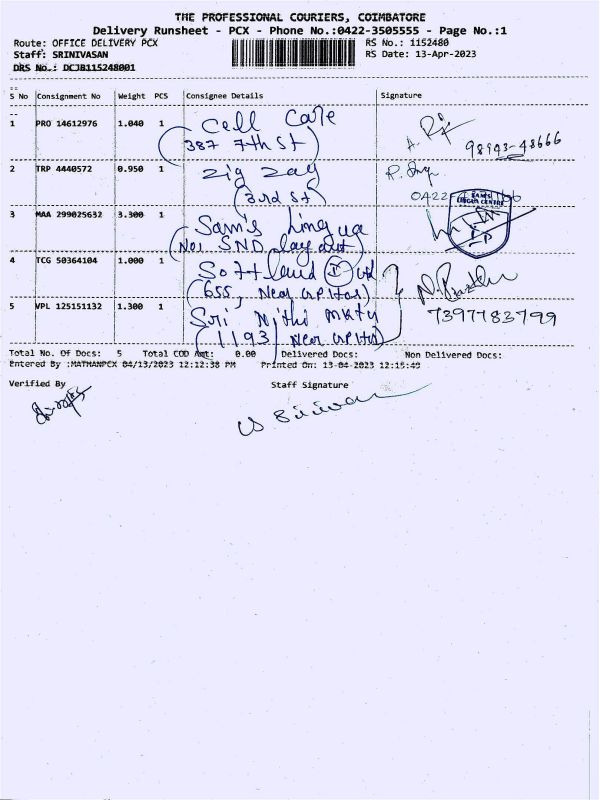 THE PROFESSIONAL COURIERS, COIMBATORE
Delivery Runsheet - PCX - Phone No.:0422-3505555 - Page No.:1
Route: OFFICE DELIVERY PCX RS No.: 1152480
Staff: SRINIVASAN RS Date: 13-Apr-2023
DRS No.: DCJB115248001
S No Consignment No Weight PCS Consignee Details Signature
1 PRO 14612976 1.040 1 Cell Care
(387 7th St)
2 TRP 4440572 0.950 1 Zig Zag
(3rd St)
0422
3 MAA 299025632 3.300 1 Sam's Lingua
(No1 SND Layout)
4 TCG 50364104 1.000 1 Softland
(655, Near
5 VPL 125151132 1.300 1 Sri Nithi
(1193) Near
7397783799
Total No. Of Docs: 5 Total COD Amt: 0.00 Delivered Docs: Non Delivered Docs:
Entered By :MATHANPCX 04/13/2023 12:12:38 PM Printed On: 13-04-2023 12:15:49
Verified By Staff Signature